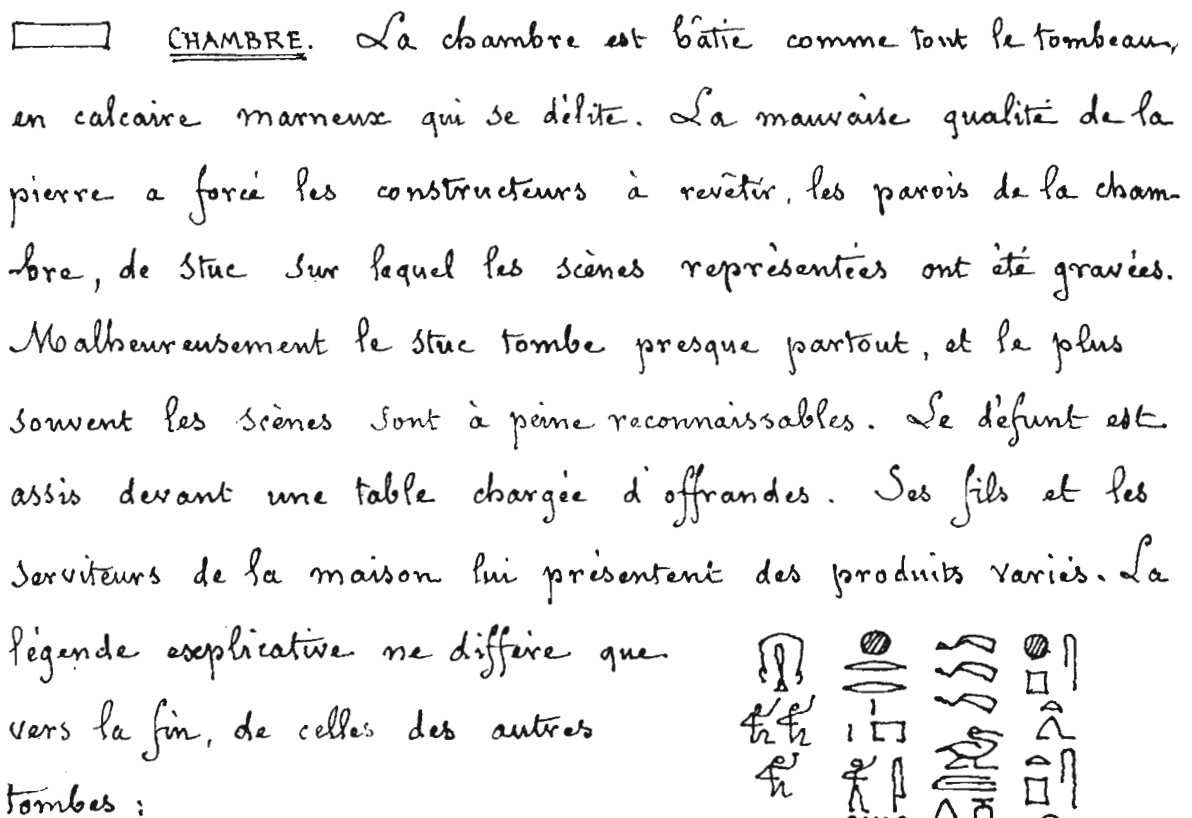 CHAMBRE. La chambre est bâtie comme tout le tombeau,
en calcaire marneux qui se délite. La mauvaise qualité de la
pierre a forcé les constructeurs à revêtir, les parois de la cham-
bre, de stuc sur lequel les scènes représentées ont été gravées.
Malheureusement le stuc tombe presque partout, et le plus
souvent les scènes sont à peine reconnaissables. Le défunt est
assis devant une table chargée d'offrandes. Ses fils et les
serviteurs de la maison lui présentent des produits variés. La
légende explicative ne diffère que
vers la fin, de celles des autres
tombes :